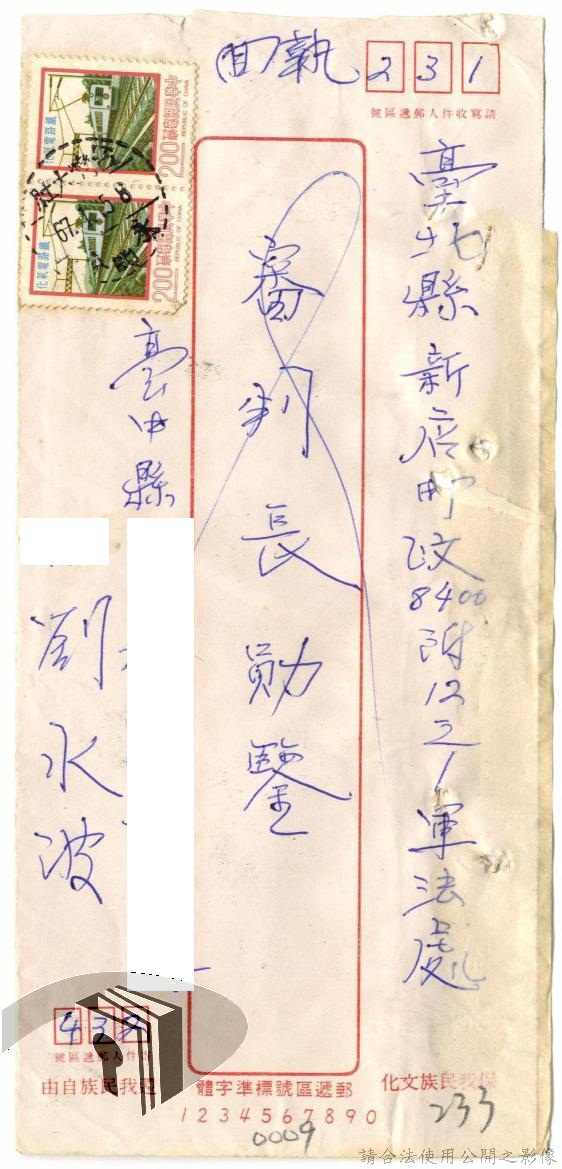 回執
231
請寫收件人郵遞區號
臺北縣新店郵政8400附12之1軍法處
審判長勛鑒
臺中縣
劉水波
432
寄件人郵遞區號
保我民族文化
郵遞區號標準字體
1234567890
還我民族自由
233
0009
中華民國郵票
REPUBLIC OF CHINA
200
鐵路電氣化
中華民國郵票
REPUBLIC OF CHINA
200
鐵路電氣化
67
請合法使用公開之影像